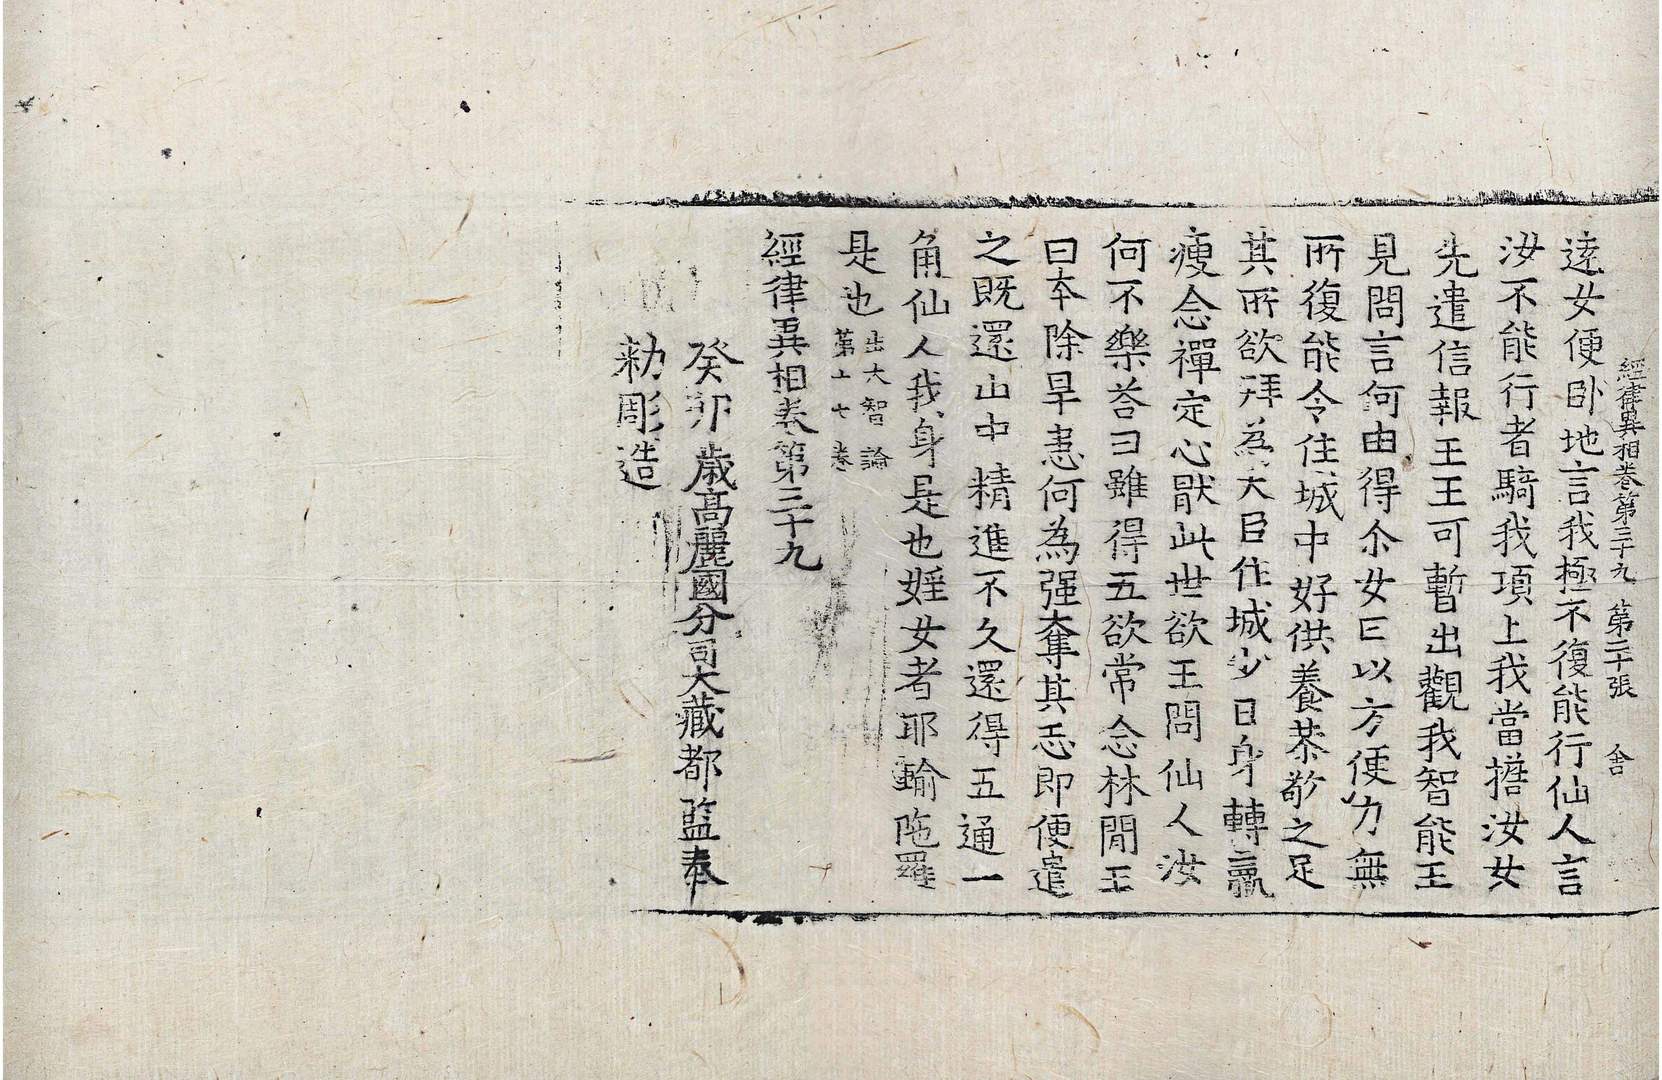 經律異相卷第三十九 第二十張 舍
逺女便卧地言我極不復能行仙人言
汝不能行者騎我項上我當擔汝女
先遣信報王王可暫出觀我智能王
見問言何由得尒女曰以方便力無
所復能令住城中好供養恭敬之足
其所欲拜為大臣住城少日身轉羸
瘦念禪定心猒此世欲王問仙人汝
何不樂荅曰雖得五欲常念林閒王
曰本除旱恚何為强奪其志即便遣
之既還山中精進不久還得五通一
角仙人我身是也婬女者耶輸陁羅
是也出大智論第十七卷
經律異相卷第三十九
癸卯歲髙麗國分司大藏都監奉
勑彫造